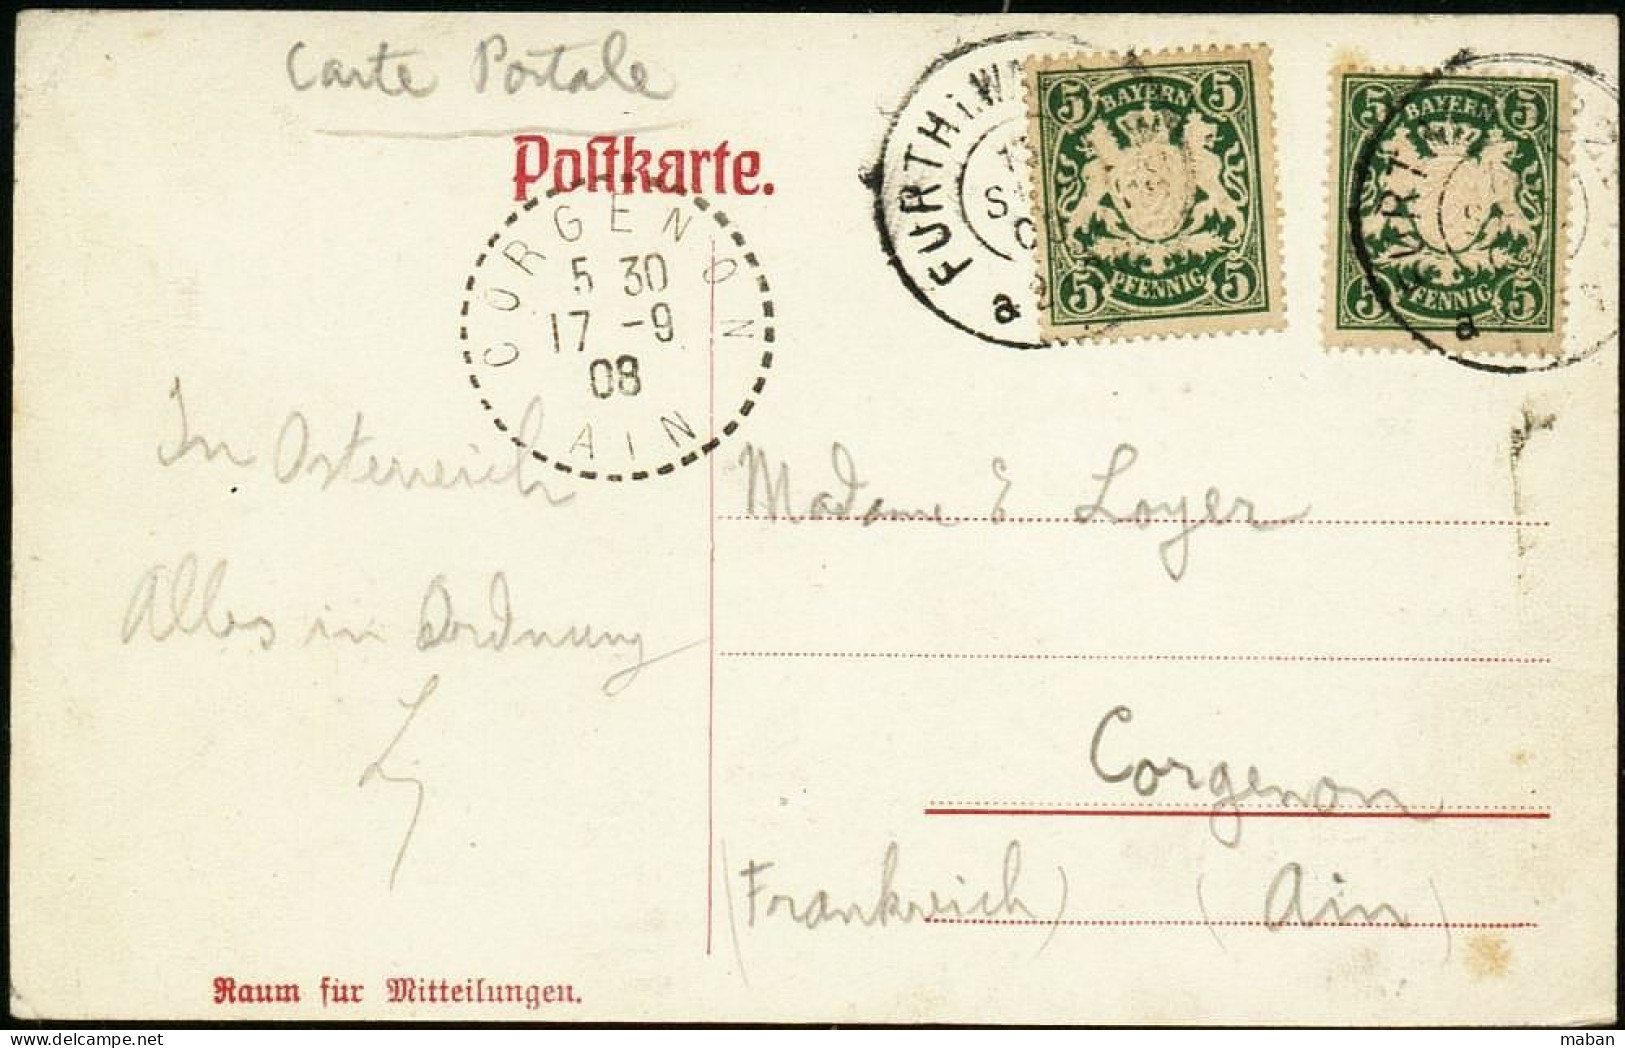 Carte Postale
Postkarte.
CORGENON
5 30
17 -9
08
AIN
FURTH i.W
a
5 BAYERN 5
5 PFENNIG 5
FURTH
a
5 BAYERN 5
5 PFENNIG 5
In Osterreich
Alles in Oordnung
Madame E Loyer
Corgenon
(Frankreich) (Ain)
Raum für Mitteilungen.
maban